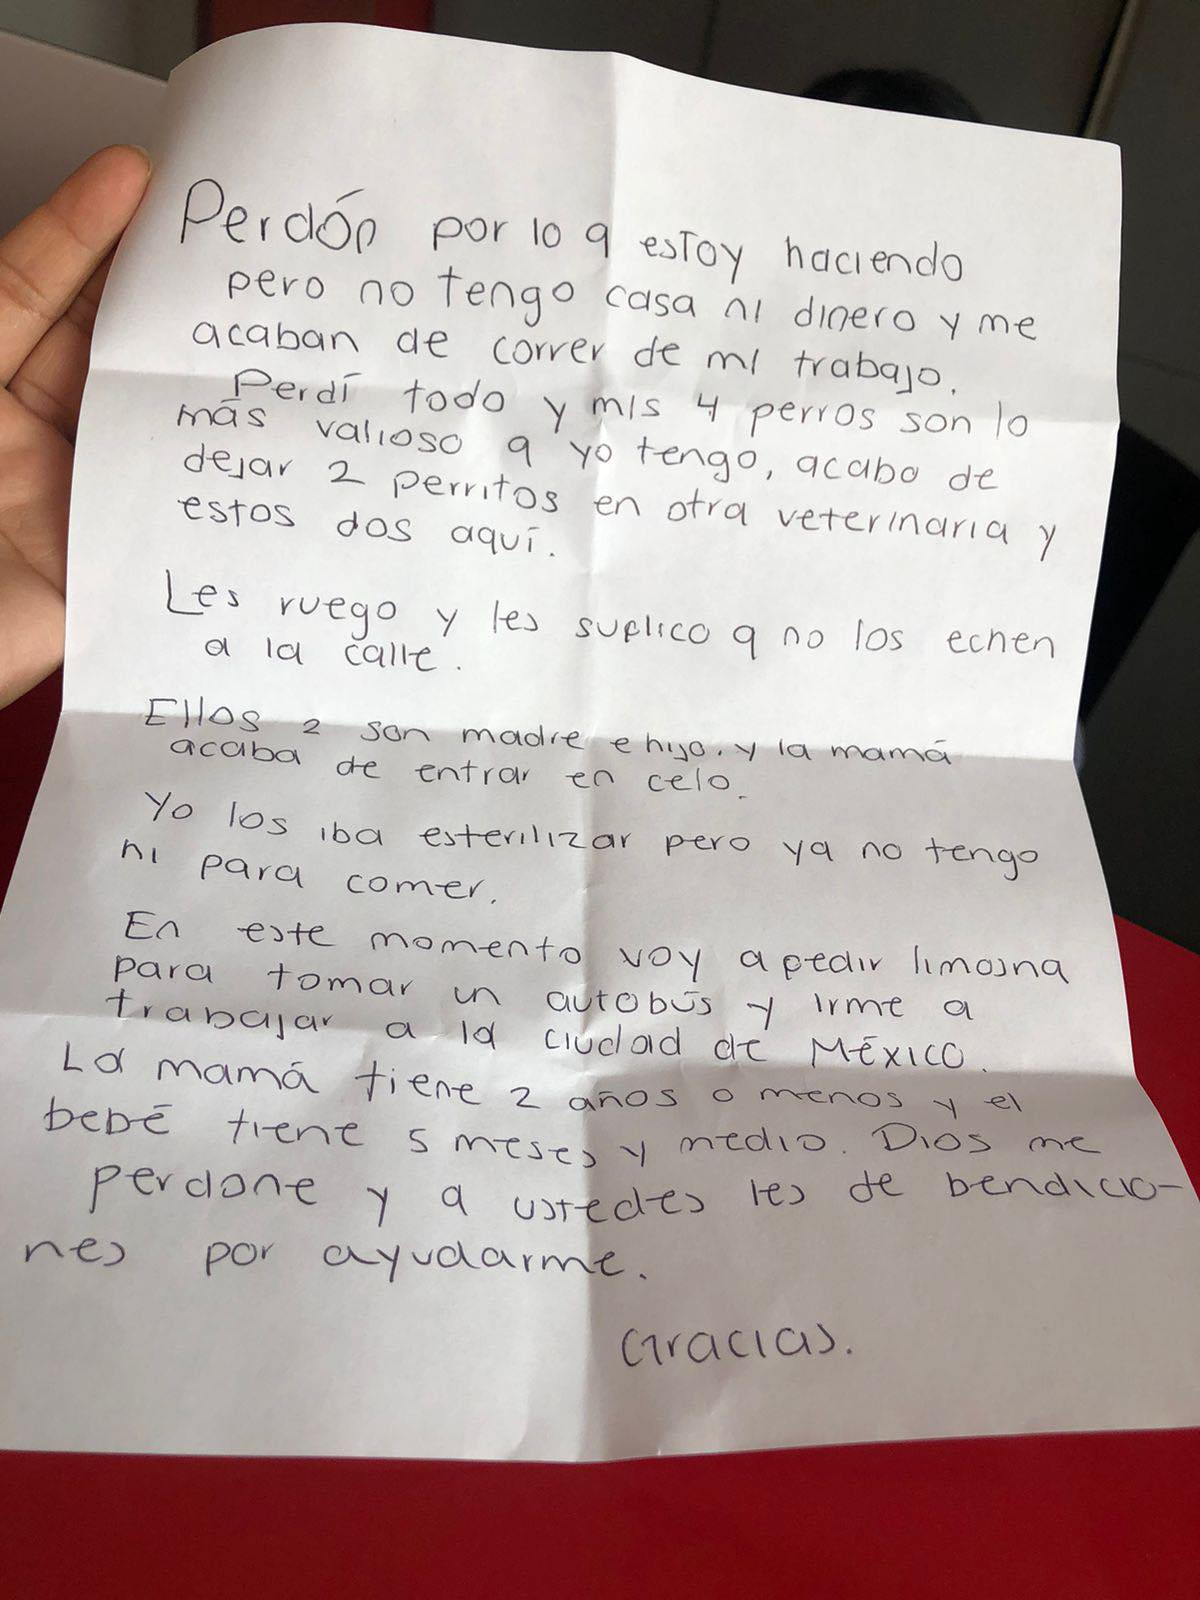 Perdón por lo q estoy haciendo
pero no tengo casa ni dinero y me
acaban de correr de mi trabajo.
Perdí todo y mis 4 perros son lo
más valioso q yo tengo, acabo de
dejar 2 perritos en otra veterinaria y
estos dos aquí.
Les ruego y les suplico q no los echen
a la calle.
Ellos 2 son madre e hijo. y la mamá
acaba de entrar en celo.
Yo los iba esterilizar pero ya no tengo
ni para comer.
En este momento voy a pedir limosna
para tomar un autobús y irme a
trabajar a la ciudad de México.
La mamá tiene 2 años o menos y el
bebé tiene 5 meses y medio. Dios me
perdone y a ustedes les de bendicio-
nes por ayudarme.
Gracias.